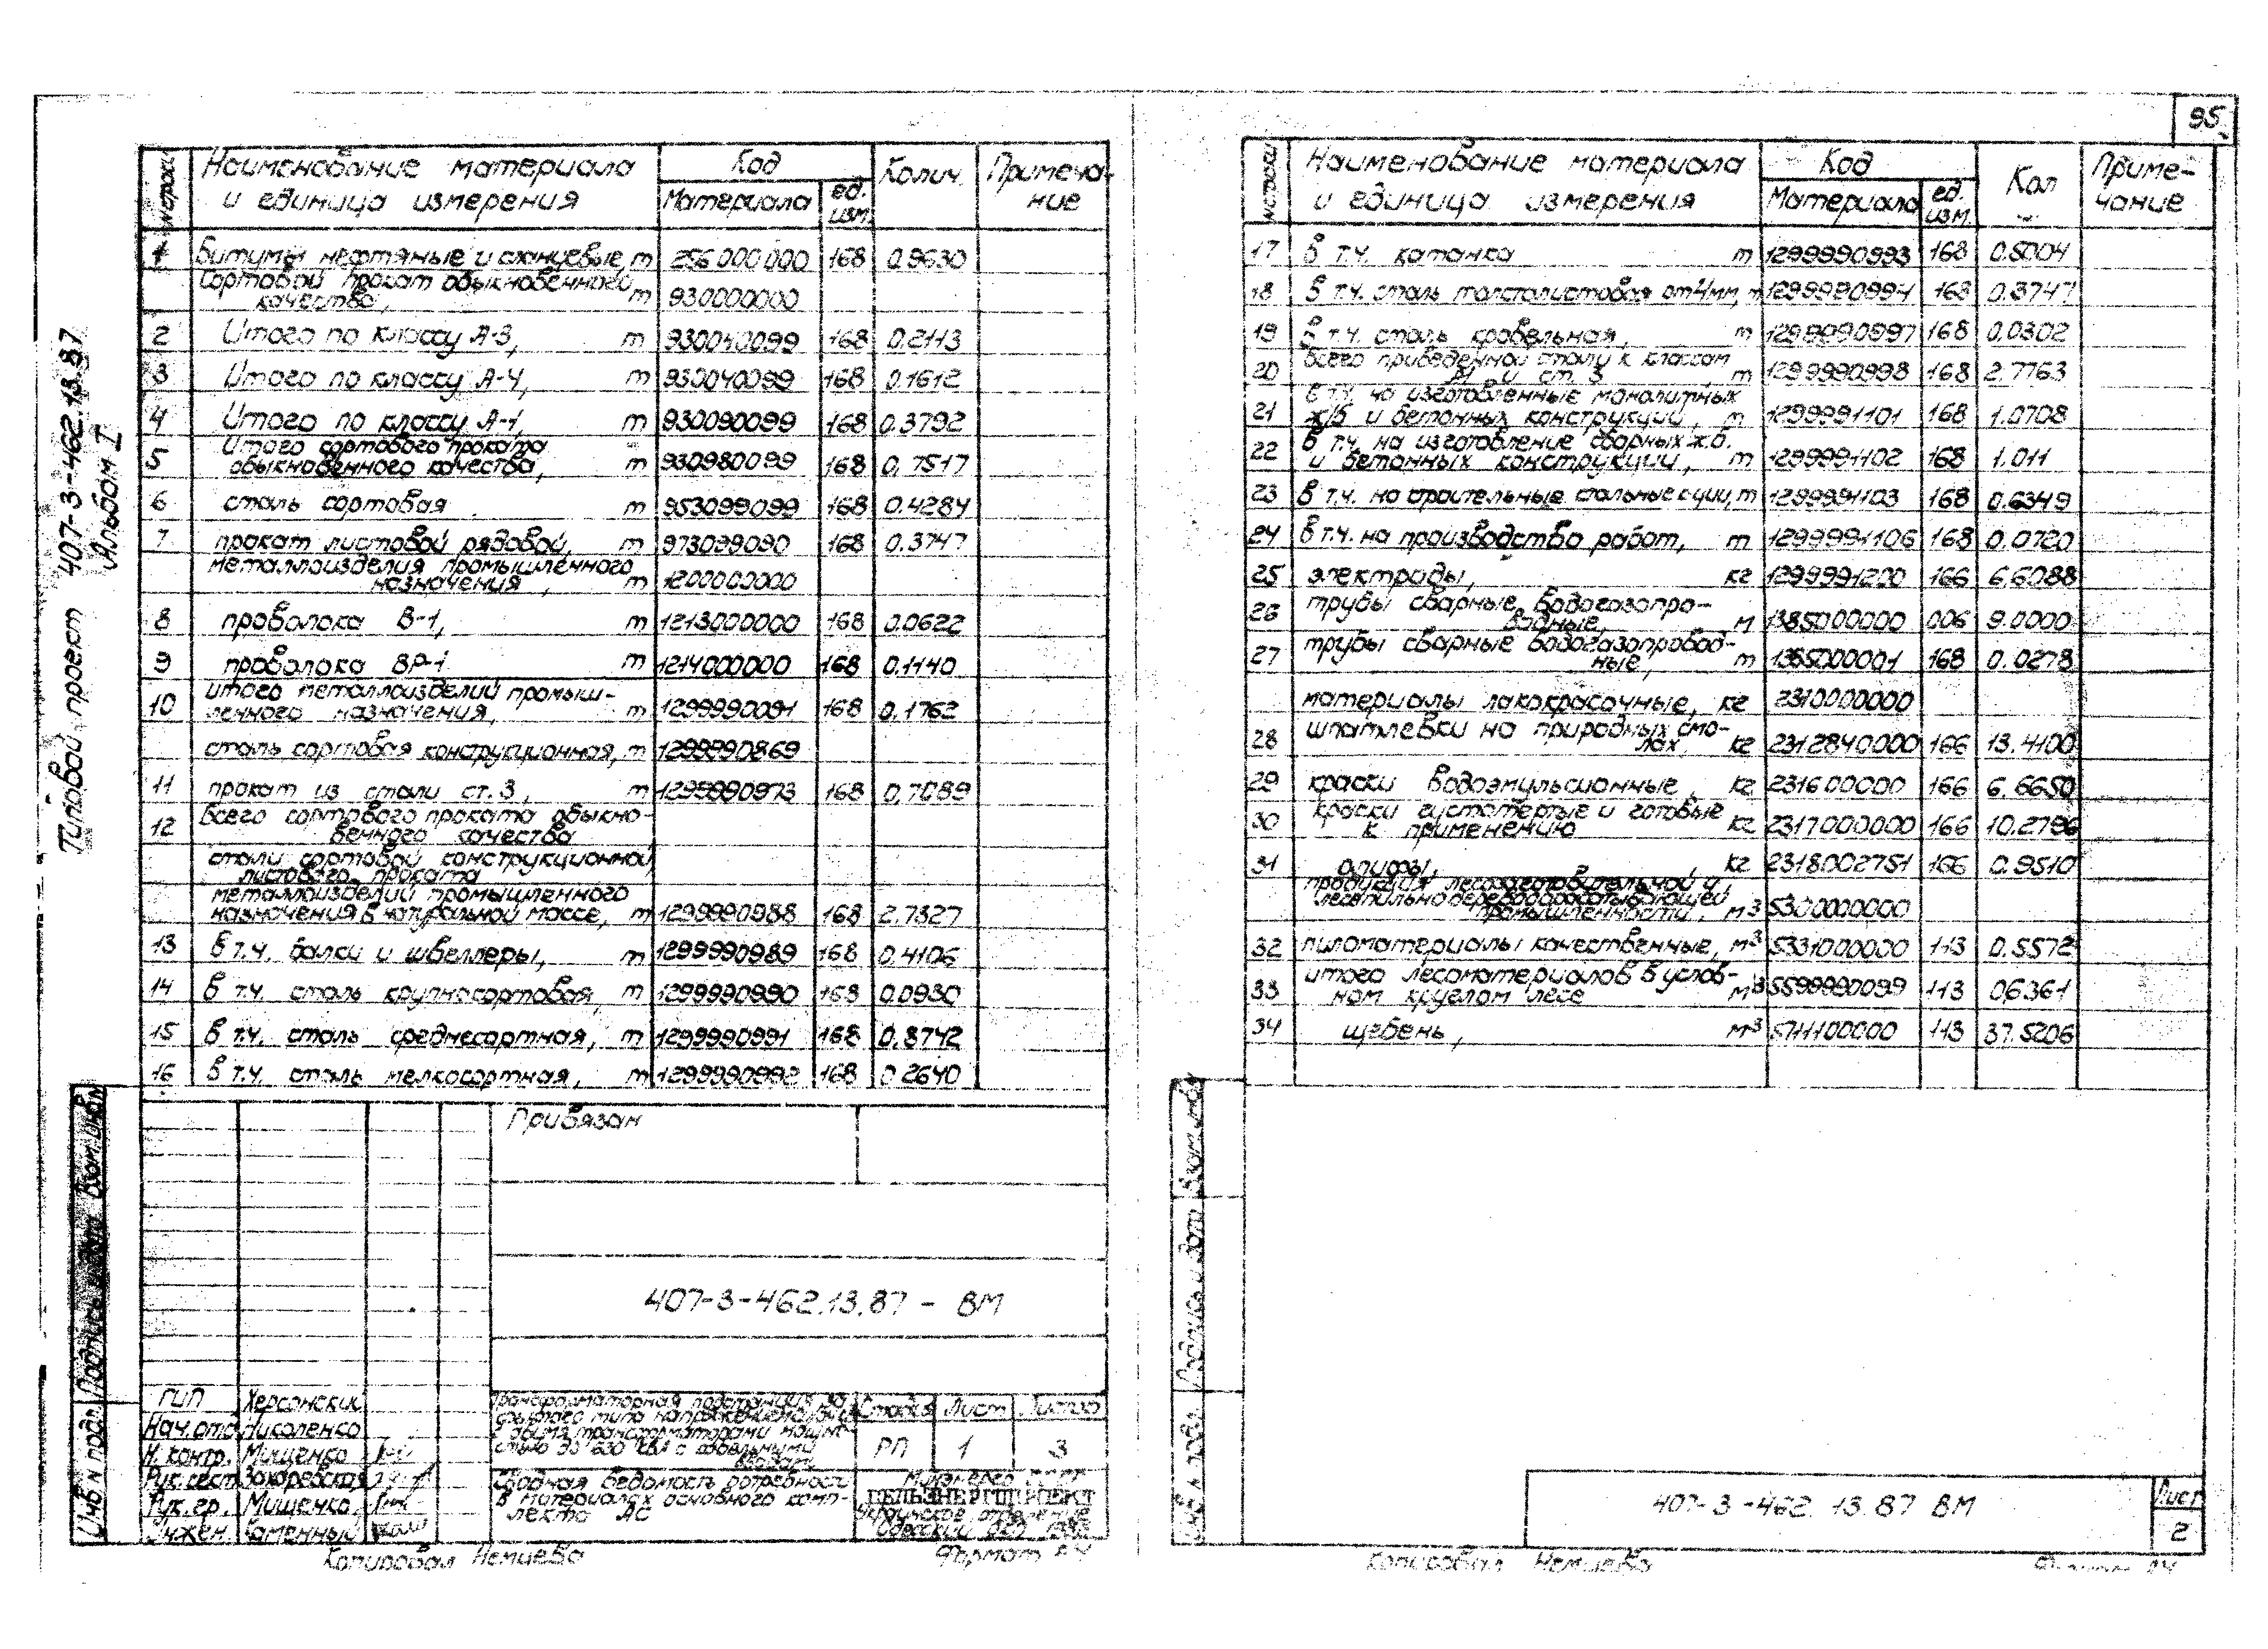 95
Типовой проект 407-3-462.13.87
Альбом I
N строки Наименование материала и единица измерения Код Материала ед. изм. Колич. Примечание
1 Битумы нефтяные и сланцевые, т 256000000 168 0.9630
Сортовой прокат обыкновенного
качества, т 930000000
2 Итого по классу А-3, т 930040099 168 0.2113
3 Итого по классу А-4, т 930040099 168 0.1612
4 Итого по классу А-1, т 930090099 168 0.3792
Итого сортового проката
5 обыкновенного качества, т 930980099 168 0,7517
6 сталь сортовая т 953099099 168 0.4284
7 прокат листовой рядовой, т 973099090 168 0.3747
металлоизделия промышленного
назначения, т 1200000000
8 проволока В-1, т 1213000000 168 0.0622
9 проволока ВР-1 т 1214000000 168 0.1140
итого металлоизделий промыш-
10 ленного назначения, т 1299990091 168 0,1762
сталь сортовая конструкционная, т 1299990869
11 прокат из стали ст.3, т 1299990973 168 0,7089
12 Всего сортового проката обыкно-
венного качества
стали сортовой конструкционной
листового проката
металлоизделий промышленного
назначения в натуральной массе, т 1299990988 168 2.7327
13 в т.ч. балки и швеллеры, т 1299990989 168 0.4106
14 в т.ч. сталь крупносортовая, т 1299990990 168 0.0930
15 в т.ч. сталь среднесортная, т 1299990991 168 0.8742
16 в т.ч. сталь мелкосортная, т 1299990992 168 0.2640
Привязан
407-3-462.13.87 - ВМ
ГИП Херсонский
Нач.отд. Николенко
Н. контр. Мищенко
Рук.сект. Захаревская
Рук.гр. Мищенко
Инжен. Каменный
Трансформаторная подстанция за-
крытого типа напряжением
с двумя трансформаторами мощно-
стью до 630 кВА с кабельными
вводами
Стадия Лист Листов
РП 1 3
Сводная ведомость потребности
в материалах основного комп-
лекта АС
Минэнерго СССР
СЕЛЬЭНЕРГОПРОЕКТ
Украинское отделение
Инв N подл. Подпись и дата Взам. инв. N
Копировал Немцева Формат А4
N строки Наименование материала и единица измерения Код Материала ед. изм. Кол Примечание
17 в т.ч. катанка т 1299990993 168 0.5004
18 в т.ч. сталь толстолистовая от 4 мм, т 1299990994 168 0.3747
19 в т.ч. сталь кровельная, т 1299990997 168 0.0302
Всего приведенной стали к классам
20 А1 и ст 3, т 1299990998 168 2.7763
в т.ч. на изготовленные монолитных
21 ж/б и бетонных конструкций, т 1299991101 168 1.0708
в т.ч. на изготовление сборных ж.б.
22 и бетонных конструкций, т 1299991102 168 1.011
23 в т.ч. на строительные стальные к-ции, т 1299991103 168 0.6349
24 в т.ч. на производство работ, т 1299991106 168 0.0720
25 электроды, кг 1299991200 166 6.6088
26 трубы сварные водогазопро-
водные, м 1385000000 006 9.0000
трубы сварные водогазопровод-
27 ные, т 1385000001 168 0.0278
материалы лакокрасочные, кг 2310000000
28 шпатлевки на природных смо-
лах, кг 2312840000 166 13.4100
29 краски водоэмульсионные, кг 231600000 166 6.6650
30 краски густотертые и готовые
к применению кг 2317000000 166 10.2796
31 олифы, кг 2318002751 166 0.9510
продукция лесозаготовительной и
лесопильно деревообрабатывающей
промышленности, м3 5300000000
32 пиломатериалы качественные, м3 5331000000 113 0.5572
итого лесоматериалов в услов-
33 ном круглом лесе м3 5599990099 113 0.6361
34 щебень, м3 5711100000 113 37.5206
407-3-462.13.87 ВМ
Лист
2
Инв N подл. Подпись и дата Взам. инв. N
Копировал Немцева Формат А4